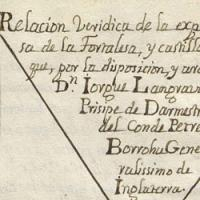 Relacion Veridica de la exp
sa de la Fortalesa, y castill
que, por la disposicion, y ar
Dn Iorque Langrav
Prisipe de Darmest
del Conde Petre
Borrohu Gene
ralissimo de
Inglaterra.